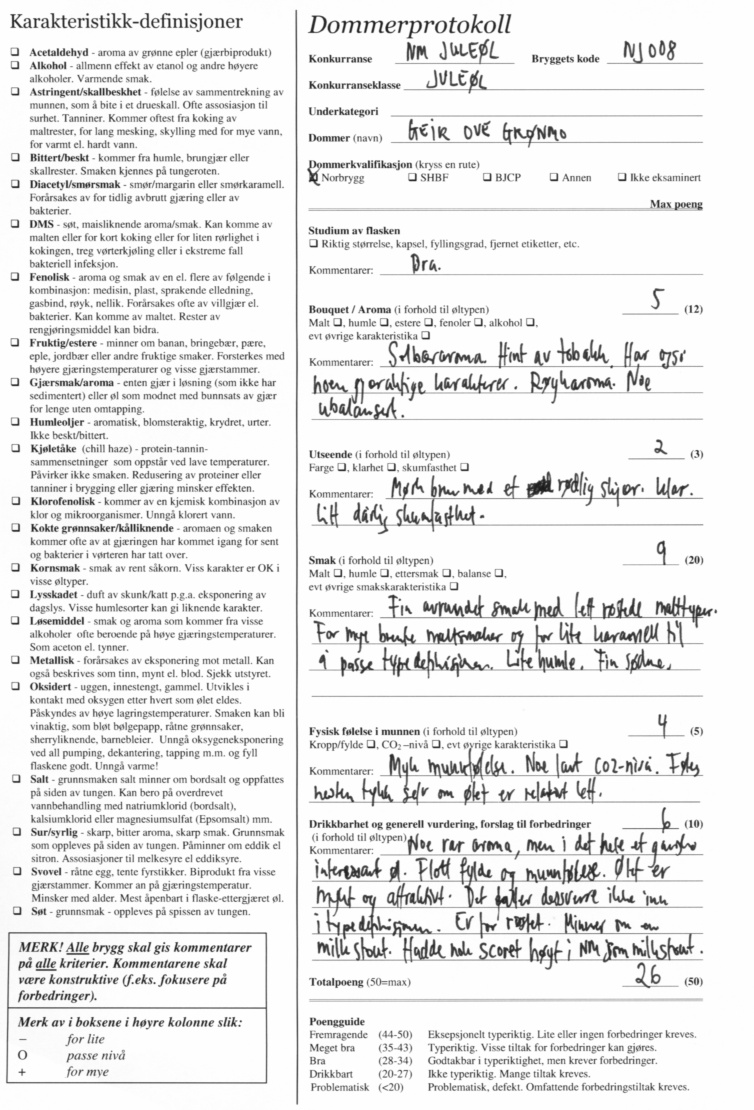 Karakteristikk-definisjoner
❑ Acetaldehyd - aroma av grønne epler (gjærbiprodukt)
❑ Alkohol - allmenn effekt av etanol og andre høyere
alkoholer. Varmende smak.
❑ Astringent/skallbeskhet - følelse av sammentrekning av
munnen, som å bite i et drueskall. Ofte assosiasjon til
surhet. Tanniner. Kommer oftest fra koking av
maltrester, for lang mesking, skylling med for mye vann,
for varmt el. hardt vann.
❑ Bittert/beskt - kommer fra humle, brungjær eller
skallrester. Smaken kjennes på tungeroten.
❑ Diacetyl/smørsmak - smør/margarin eller smørkaramell.
Forårsakes av for tidlig avbrutt gjæring eller av
bakterier.
❑ DMS - søt, maisliknende aroma/smak. Kan komme av
malten eller for kort koking eller for liten rørlighet i
kokingen, treg vørterkjøling eller i ekstreme fall
bakteriell infeksjon.
❑ Fenolisk - aroma og smak av en el. flere av følgende i
kombinasjon: medisin, plast, sprakende elledning,
gasbind, røyk, nellik. Forårsakes ofte av villgjær el.
bakterier. Kan komme av maltet. Rester av
rengjøringsmiddel kan bidra.
❑ Fruktig/estere - minner om banan, bringebær, pære,
eple, jordbær eller andre fruktige smaker. Forsterkes med
høyere gjæringstemperaturer og visse gjærstammer.
❑ Gjærsmak/aroma - enten gjær i løsning (som ikke har
sedimentert) eller øl som modnet med bunnsats av gjær
for lenge uten omtapping.
❑ Humleoljer - aromatisk, blomsteraktig, krydret, urter.
Ikke beskt/bittert.
❑ Kjøletåke (chill haze) - protein-tannin-
sammensetninger som oppstår ved lave temperaturer.
Påvirker ikke smaken. Redusering av proteiner eller
tanniner i brygging eller gjæring minsker effekten.
❑ Klorofenolisk - kommer av en kjemisk kombinasjon av
klor og mikroorganismer. Unngå klorert vann.
❑ Kokte grønnsaker/kålliknende - aromaen og smaken
kommer ofte av at gjæringen har kommet igang for sent
og bakterier i vørteren har tatt over.
❑ Kornsmak - smak av rent såkorn. Viss karakter er OK i
visse øltyper.
❑ Lysskadet - duft av skunk/katt p.g.a. eksponering av
dagslys. Visse humlesorter kan gi liknende karakter.
❑ Løsemiddel - smak og aroma som kommer fra visse
alkoholer ofte beroende på høye gjæringstemperaturer.
Som aceton el. tynner.
❑ Metallisk - forårsakes av eksponering mot metall. Kan
også beskrives som tinn, mynt el. blod. Sjekk utstyret.
❑ Oksidert - uggen, innestengt, gammel. Utvikles i
kontakt med oksygen etter hvert som ølet eldes.
Påskyndes av høye lagringstemperaturer. Smaken kan bli
vinaktig, som bløt bølgepapp, råtne grønnsaker,
sherryliknende, barnebleier. Unngå oksygeneksponering
ved all pumping, dekantering, tapping m.m. og fyll
flaskene godt. Unngå varme!
❑ Salt - grunnsmaken salt minner om bordsalt og oppfattes
på siden av tungen. Kan bero på overdrevet
vannbehandling med natriumklorid (bordsalt),
kalsiumklorid eller magnesiumsulfat (Epsomsalt) mm.
❑ Sur/syrlig - skarp, bitter aroma, skarp smak. Grunnsmak
som oppleves på siden av tungen. Påminner om eddik el
sitron. Assosiasjoner til melkesyre el eddiksyre.
❑ Svovel - råtne egg, tente fyrstikker. Biprodukt fra visse
gjærstammer. Kommer an på gjæringstemperatur.
Minsker med alder. Mest åpenbart i flaske-ettergjæret øl.
❑ Søt - grunnsmak - oppleves på spissen av tungen.
MERK! Alle brygg skal gis kommentarer
på alle kriterier. Kommentarene skal
være konstruktive (f.eks. fokusere på
forbedringer).
Merk av i boksene i høyre kolonne slik:
– for lite
O passe nivå
+ for mye
Dommerprotokoll
Konkurranse NM JULEØL Bryggets kode NJ008
Konkurranseklasse JULEØL
Underkategori
Dommer (navn) GEIR OVE GRØNMO
Dommerkvalifikasjon (kryss en rute)
☒ Norbrygg ❑ SHBF ❑ BJCP ❑ Annen ❑ Ikke eksaminert
Max poeng
Studium av flasken
❑ Riktig størrelse, kapsel, fyllingsgrad, fjernet etiketter, etc.
Kommentarer: Bra.
Bouquet / Aroma (i forhold til øltypen) 5 (12)
Malt ❑, humle ❑, estere ❑, fenoler ❑, alkohol ❑,
evt øvrige karakteristika ❑
Kommentarer: Solbæraroma. Hint av tobakk. Har også
noen karakterer. Røykaroma. Noe
ubalansert.
Utseende (i forhold til øltypen) 2 (3)
Farge ❑, klarhet ❑, skumfasthet ❑
Kommentarer: Mørk brun med et rødlig skjær. Klar.
Litt dårlig skumfasthet.
Smak (i forhold til øltypen) 9 (20)
Malt ❑, humle ❑, ettersmak ❑, balanse ❑,
evt øvrige smakskarakteristika ❑
Kommentarer: Fin avrundet smak med lett ristede malttyper.
For mye brente maltsmaker og for lite karamell til
å passe typedefinisjonen. Lite humle. Fin sødme.
Fysisk følelse i munnen (i forhold til øltypen) 4 (5)
Kropp/fylde ❑, CO2 –nivå ❑, evt øvrige karakteristika ❑
Kommentarer: Myk munnfølelse. Noe lavt CO2-nivå. Føles
nesten tykk selv om ølet er relativt lett.
Drikkbarhet og generell vurdering, forslag til forbedringer 6 (10)
(i forhold til øltypen)
Kommentarer: Noe rar aroma, men i det hele et ganske
interessant øl. Flott fylde og munnfølelse. Ølet er
mykt og attraktivt. Det faller dessverre ikke inn
i typedefinisjonen. Er for ristet. Minner om en
milk stout. Hadde nok scoret høyt i NM som milk stout.
Totalpoeng (50=max) 26 (50)
Poengguide
Fremragende (44-50) Eksepsjonelt typeriktig. Lite eller ingen forbedringer kreves.
Meget bra (35-43) Typeriktig. Visse tiltak for forbedringer kan gjøres.
Bra (28-34) Godtakbar i typeriktighet, men krever forbedringer.
Drikkbart (20-27) Ikke typeriktig. Mange tiltak kreves.
Problematisk (<20) Problematisk, defekt. Omfattende forbedringstiltak kreves.